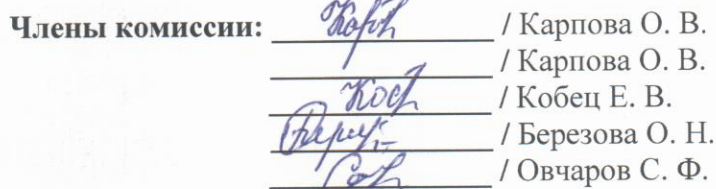 Члены комиссии: / Карпова О. В.
/ Карпова О. В.
/ Кобец Е. В.
/ Березова О. Н.
/ Овчаров С. Ф.